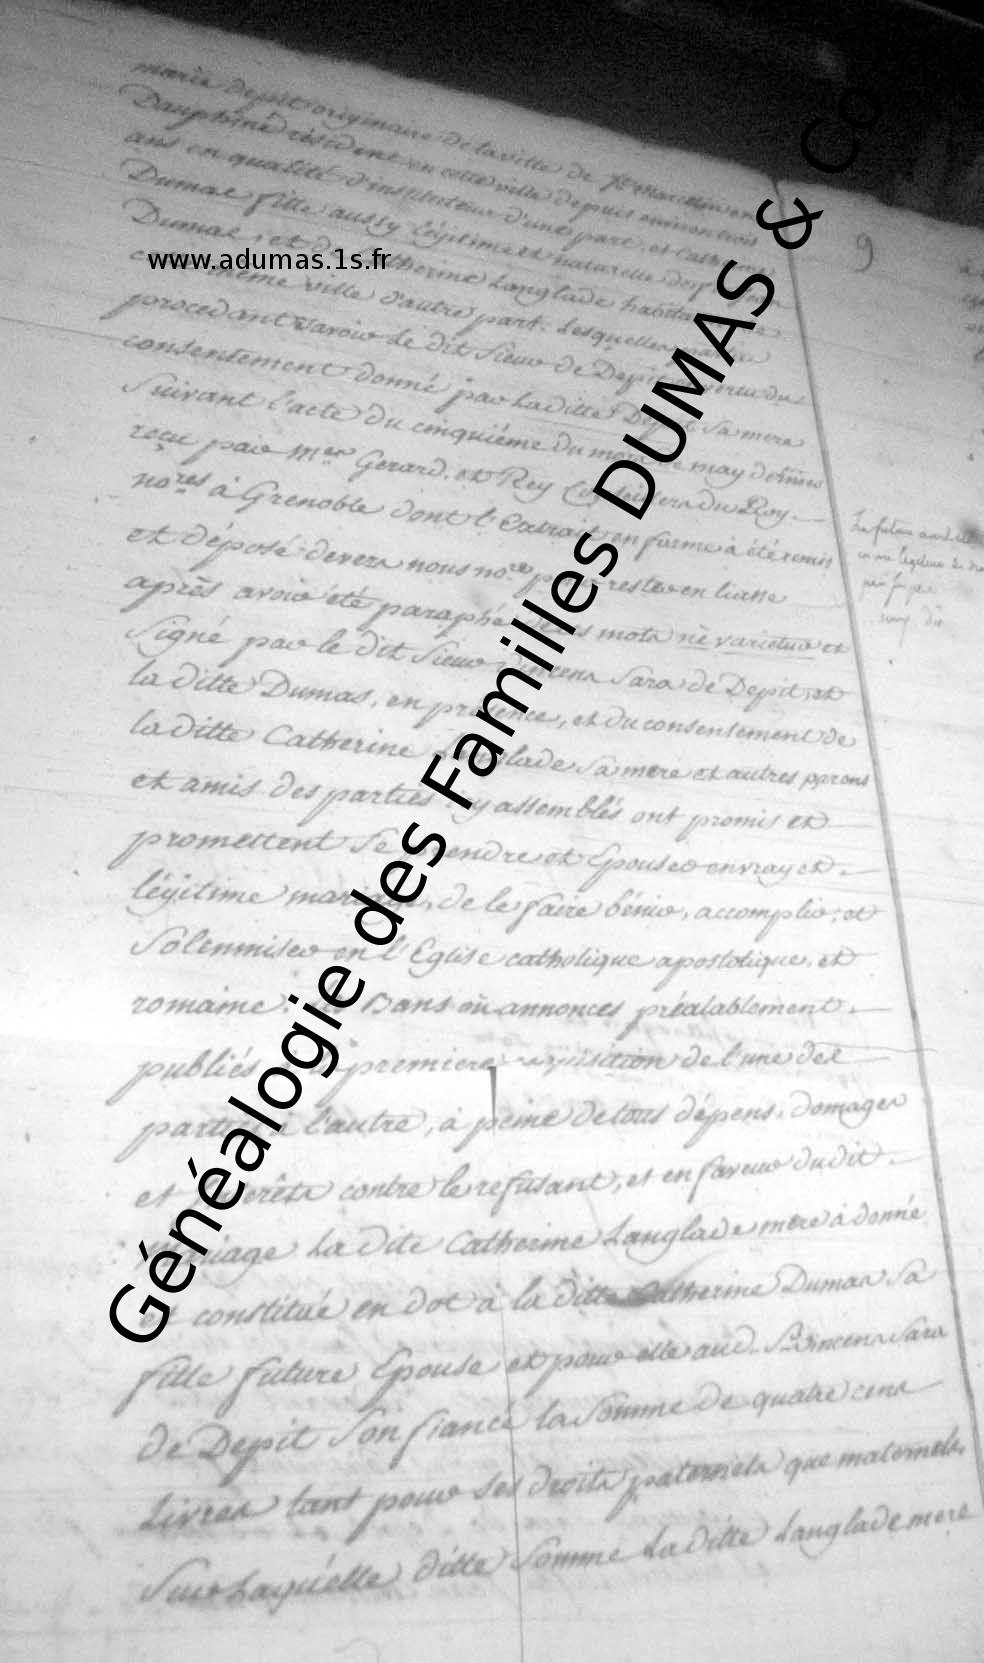 marie depit originaire de la ville de St Marcellin en
Dauphiné résident en cette ville depuis environ trois
ans en qualité d'instituteur d'une part, et Catherine
Dumas fille aussy légitime et naturelle de
Dumas, et de Catherine Langlade habitante
même ville d'autre part. Lesquelles parties
procedant savoir le dit sieur de Depit en vertu du
consentement donné par laditte Depit sa mere
Suivant l'acte du cinquiéme du mois de may dernier
reçu par Mes Gerard, et Rey Conseillers du Roy
nores à Grenoble dont l'Extrait en forme à été remis
et déposé devers nous nore pour rester en liasse
après avoir eté paraphé des mots ne varietur et
Signé par le dit Sieur Vincens Sara de Depit, et
la ditte Dumas, en presence, et du consentement de
la ditte Catherine Langlade sa mere et autres parens
et amis des parties icy assemblés ont promis et
promettent Se prendre et Epouser en vray et
légitime mariage, de le faire bénir, accomplir, et
Solenniser en l'Eglise catholique apostolique, et
romaine, les Bans ou annonces préalablement
publiés à la premiere requisition de l'une des
parties à l'autre, à peine de tous dépens, domages
et interêts contre le refusant, et en faveur du dit
mariage La dite Catherine Langlade mere à donné
et constitué en dot à la ditte Catherine Dumas Sa
fille future Epouse et pour elle aud. Sr Vincens Sara
de Depit Son fiancé la Somme de quatre cens
Livres tant pour ses droits paternels que maternels
Sur Laquelle ditte Somme La ditte Langlade mere
9
www.adumas.1s.fr
Généalogie des Familles DUMAS & Co